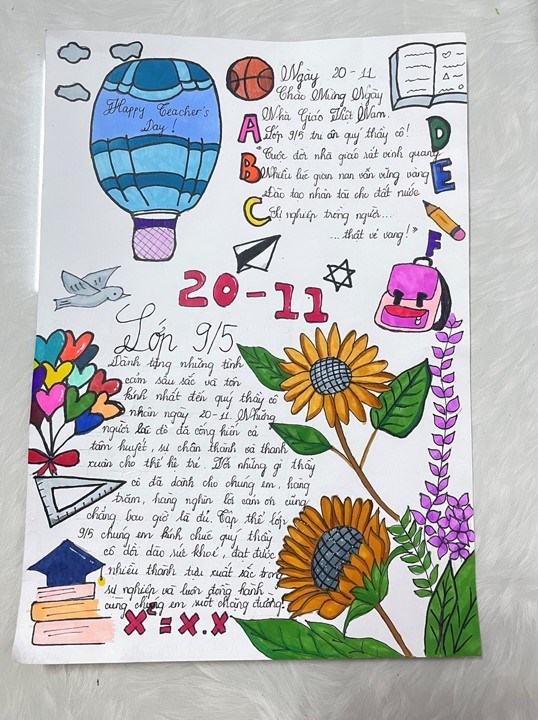 Happy Teacher's
Day!
Ngày 20-11
Chào Mừng Ngày
Nhà Giáo Việt Nam.
Lớp 9/5 tri ân quý thầy cô!
"Cuộc đời nhà giáo rất vinh quang
Nhiều lúc gian nan vẫn vững vàng
Đào tạo nhân tài cho đất nước
Sự nghiệp trồng người...
...thật vẻ vang!"
A
B
C
D
E
F
20-11
Lớp 9/5
Dành tặng những tình
cảm sâu sắc và tôn
kính nhất đến quý thầy cô
nhân ngày 20-11. Những
người lái đò đã cống hiến cả
tâm huyết, sự chân thành và thanh
xuân cho thế hệ trẻ. Với những gì thầy
cô đã dành cho chúng em, hàng
trăm, hàng nghìn lời cảm ơn cũng
chẳng bao giờ là đủ. Tập thể lớp
9/5 chúng em kính chúc quý thầy
cô dồi dào sức khoẻ, đạt được
nhiều thành tựu xuất sắc trong
sự nghiệp và luôn đồng hành
cùng chúng em suốt chặng đường.
x²=x.x